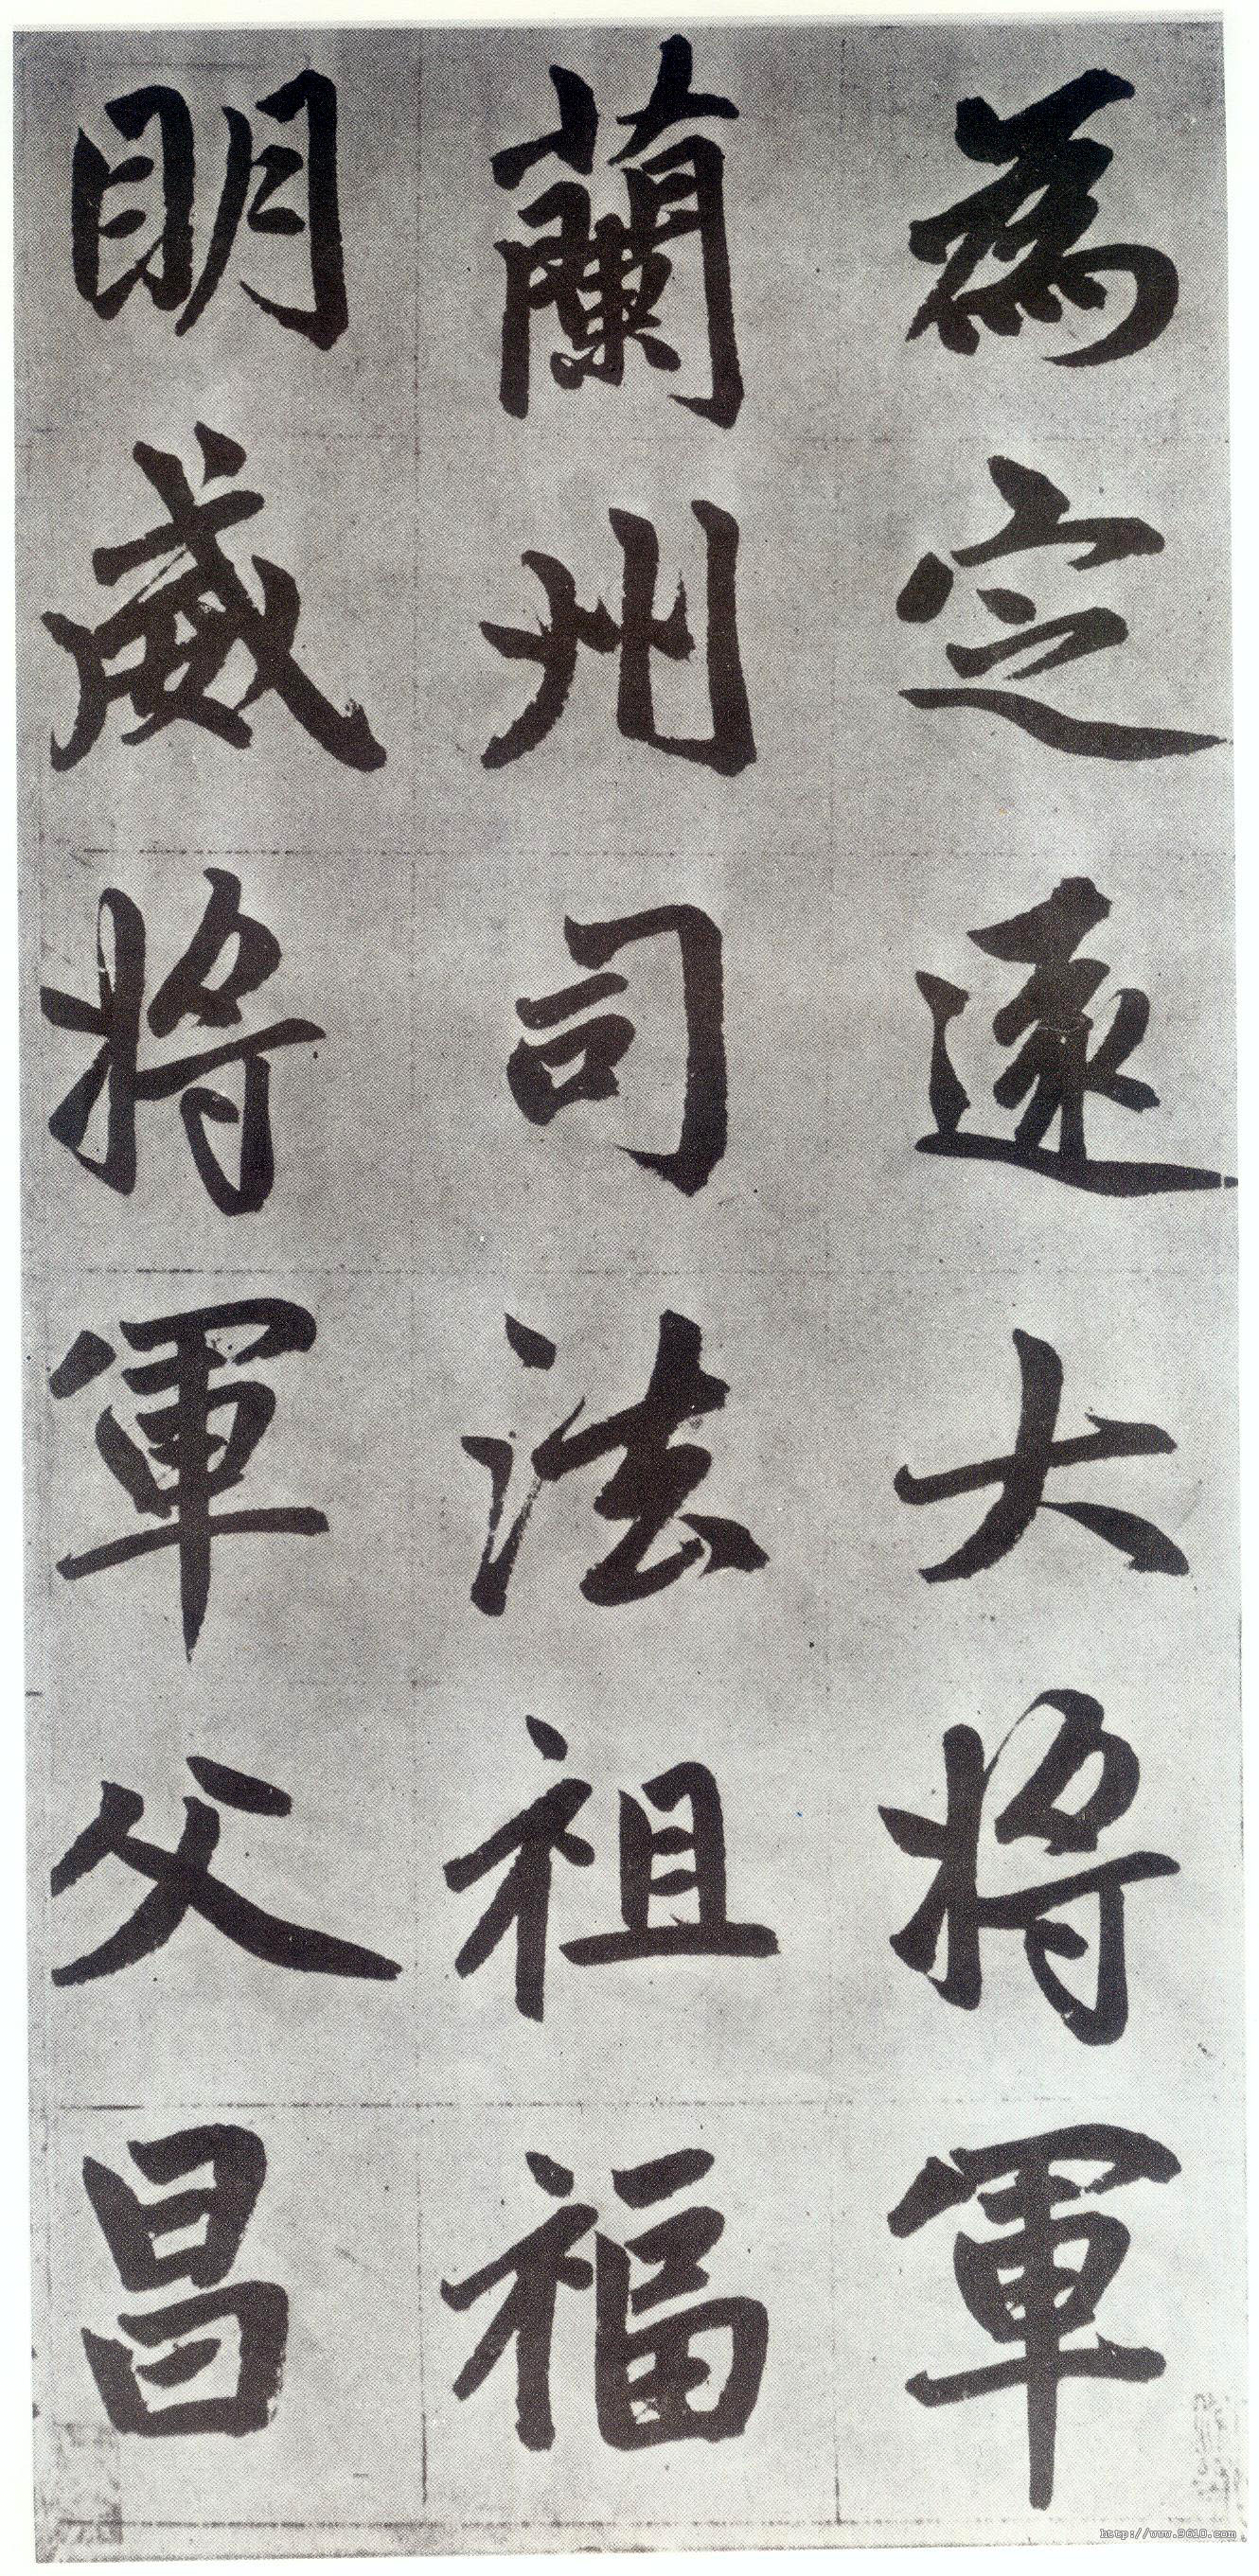 為定遠大將軍
蘭州司法祖福
明威將軍父昌
http://www.9610.com